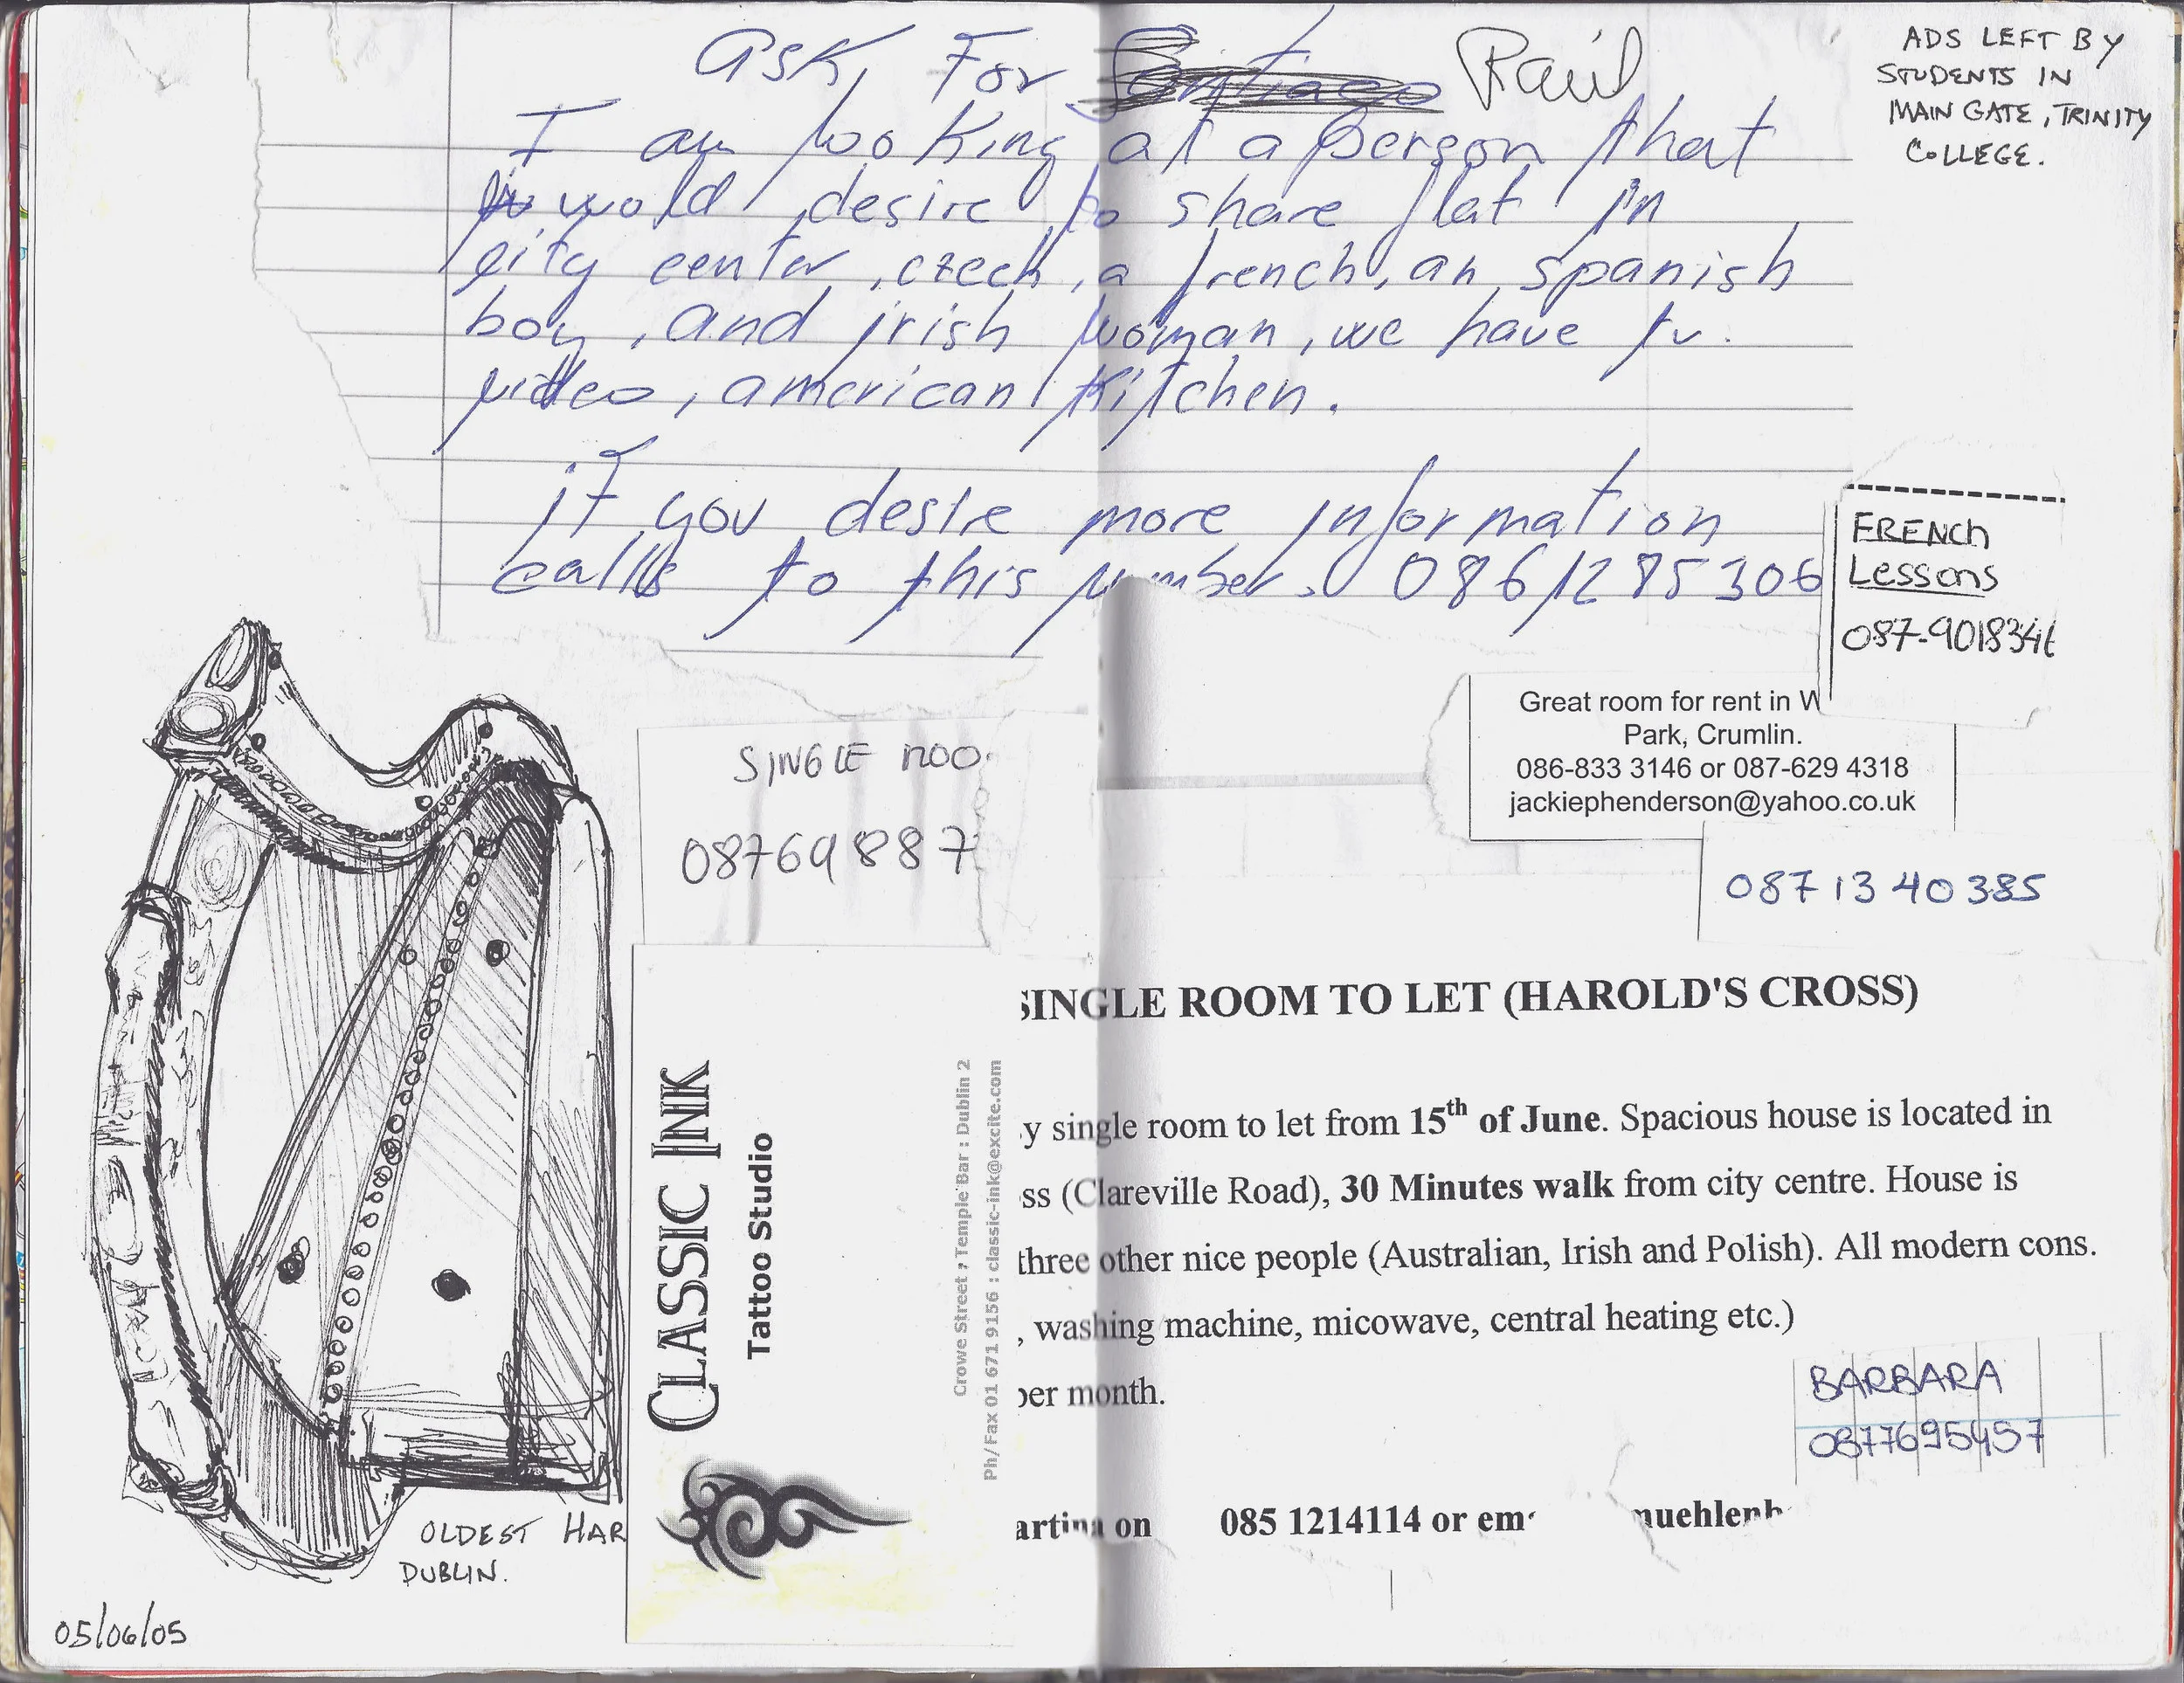 ask For Santiago Raúl
I am looking at a person that
would desire to share flat in
city center, czech, a french, an spanish
boy, and irish woman, we have tv.
video, american kitchen.
if you desire more information
calls to this number. 086/285306
ADS LEFT BY
STUDENTS IN
MAIN GATE, TRINITY
COLLEGE.
FRENCh
Lessons
087-901834
Great room for rent in W
Park, Crumlin.
086-833 3146 or 087-629 4318
jackiephenderson@yahoo.co.uk
087 13 40 385
SINGLE ROO
08769887
CLASSIC INK
Tattoo Studio
Crowe Street, Temple Bar : Dublin 2
Ph/Fax 01 671 9156 : classic-ink@excite.com
SINGLE ROOM TO LET (HAROLD'S CROSS)
y single room to let from 15th of June. Spacious house is located in
ss (Clareville Road), 30 Minutes walk from city centre. House is
three other nice people (Australian, Irish and Polish). All modern cons.
, washing machine, micowave, central heating etc.)
per month.
BARBARA
0877695457
artina on 085 1214114 or em muehlenb
OLDEST HAR
DUBLIN.
05/06/05